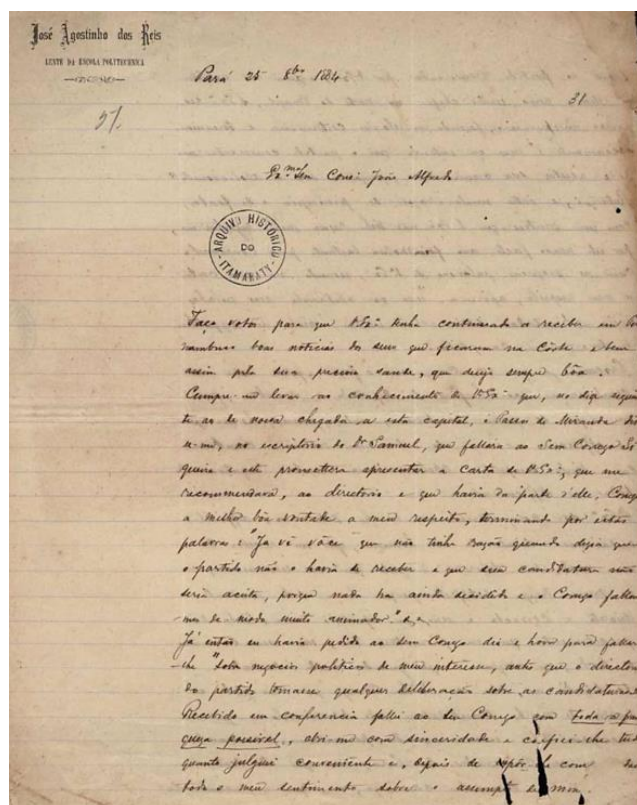 José Agostinho dos Reis
LENTE DA ESCOLA POLYTECHNICA
Pará 25 8bro 1884
31
57.
Exmo Sen Consº João Alfredo
ARQUIVO HISTÓRICO
DO
ITAMARATY
Faço votos para que V.Exª tenha continuado a receber em Per
nambuco boas noticias dos seus que ficaram na Côrte e bem
assim pela sua preciosa saude, que desejo sempre bôa.
Cumpre-me levar ao conhecimento de V.Exª que, no dia seguin
te ao de nossa chegada a esta capital, o Passos de Miranda dis
se-me, no escriptorio do Dr Samuel, que fallara ao Sem Conego Si
queira e este promettera apresentar a Carta de V.Exª, que me
recommendava, ao directorio e que havia da parte d'elle, Conego
a melhor bôa vontade a meu respeito, terminando por estas
palavras: "Ja vê vôce que não tinha razão quando dizia que
o partido não o havia de receber e que sua candidatura não
seria aceita, porque nada ha ainda decidido e o Conego fallou
-me de modo muito animador."
Já então eu havia pedido ao Sem Conego dia e hora para fallar
-lhe "sobre negocios politicos de meu interesse, antes que o directorio
do partido tomasse qualquer deliberação sobre as candidaturas.
Recebido em conferencia fallei ao Sen Conego com toda a fran
queza possivel, abri-me com sinceridade e lhe tudo
quanto julguei conveniente e, depois de expôr-lhe com
todo o meu sentimento sobre o assumpto